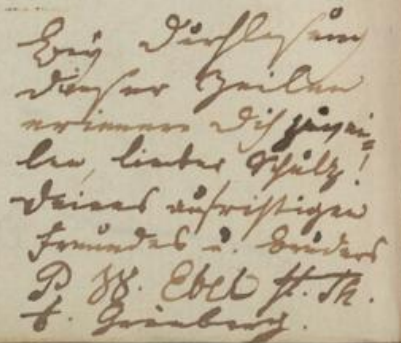 Bey Durchlesung
dieser Zeilen
erinnere Dich zuwei-
len, lieber Schulz!
Deines aufrichtigen
Freundes u. Bruders
W. Ebel
Grünberg.